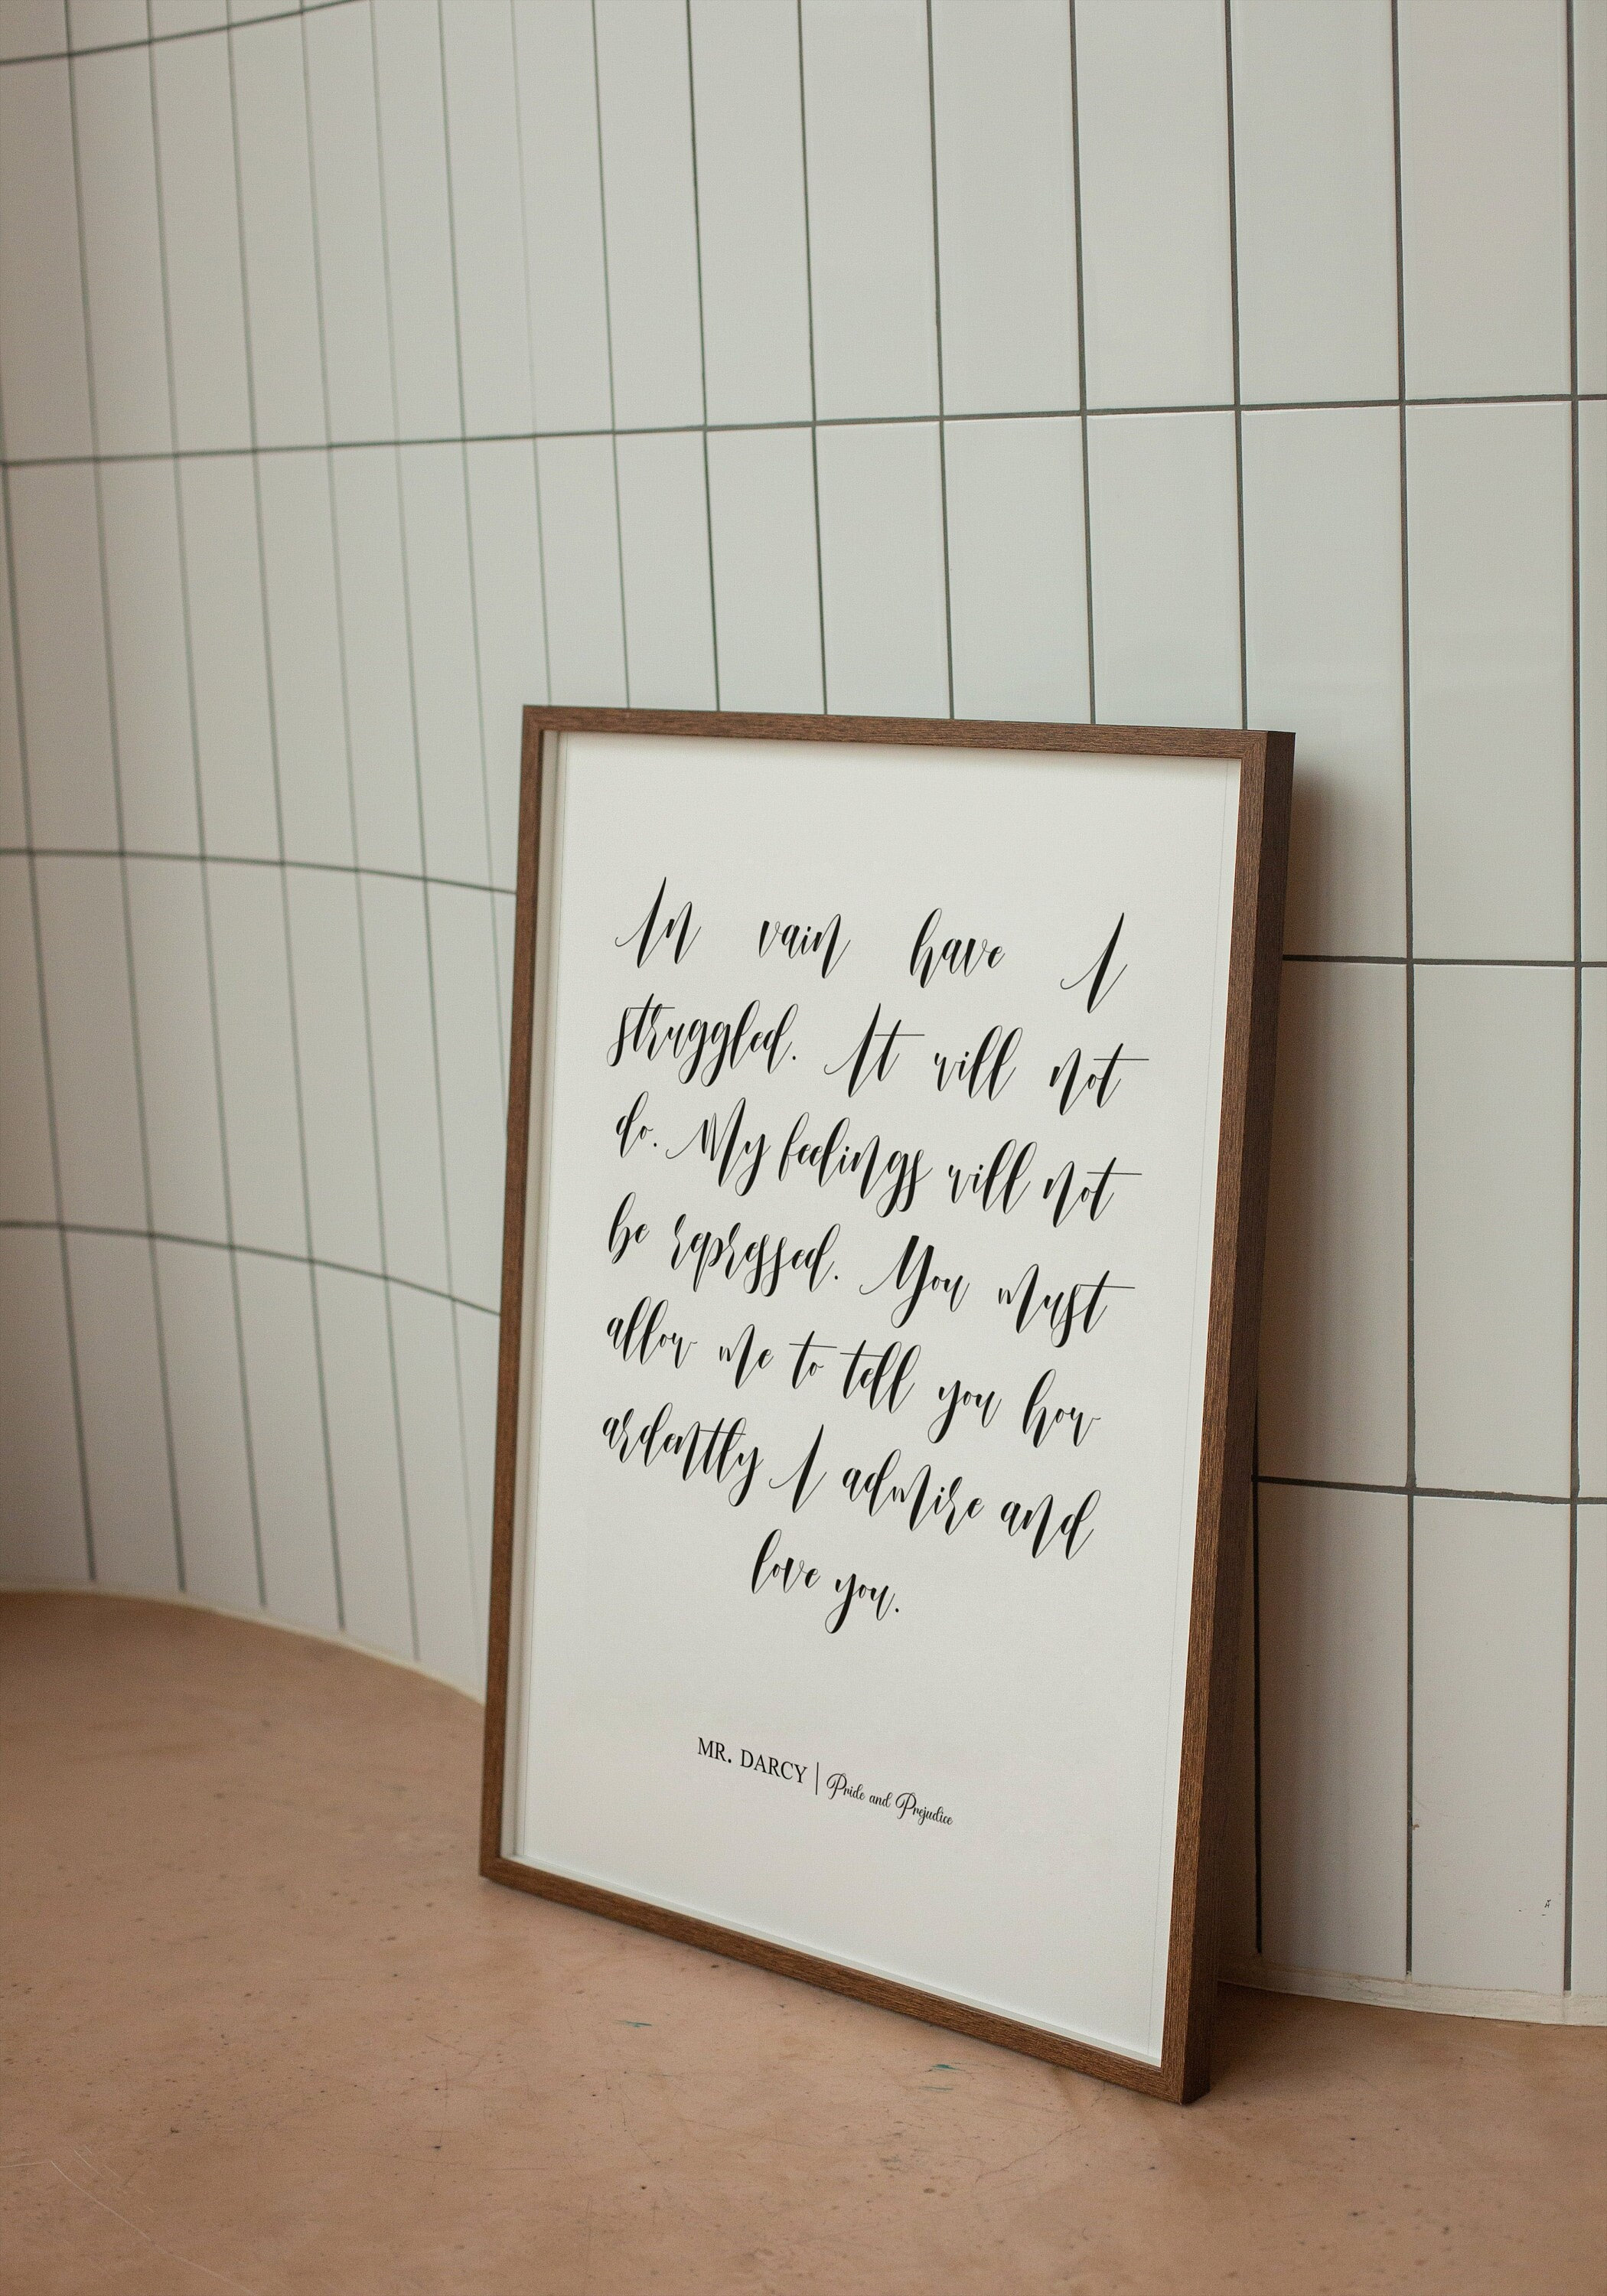 In vain have I
struggled. It will not
do. My feelings will not
be repressed. You must
allow me to tell you how
ardently I admire and
love you.
MR. DARCY | Pride and Prejudice